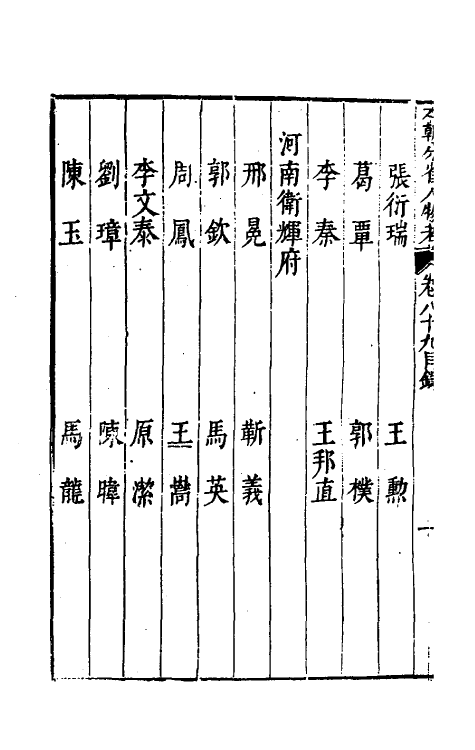 本朝分省人物考 卷八十九目錄 一
張衍瑞 王勲
葛覃 郭樸
李秦 王邦直
河南衛輝府
邢晃 靳義
郭欽 馬英
周鳳 王嵩
李文泰 原潔
劉璋 陳暐
陳玉 馬龍